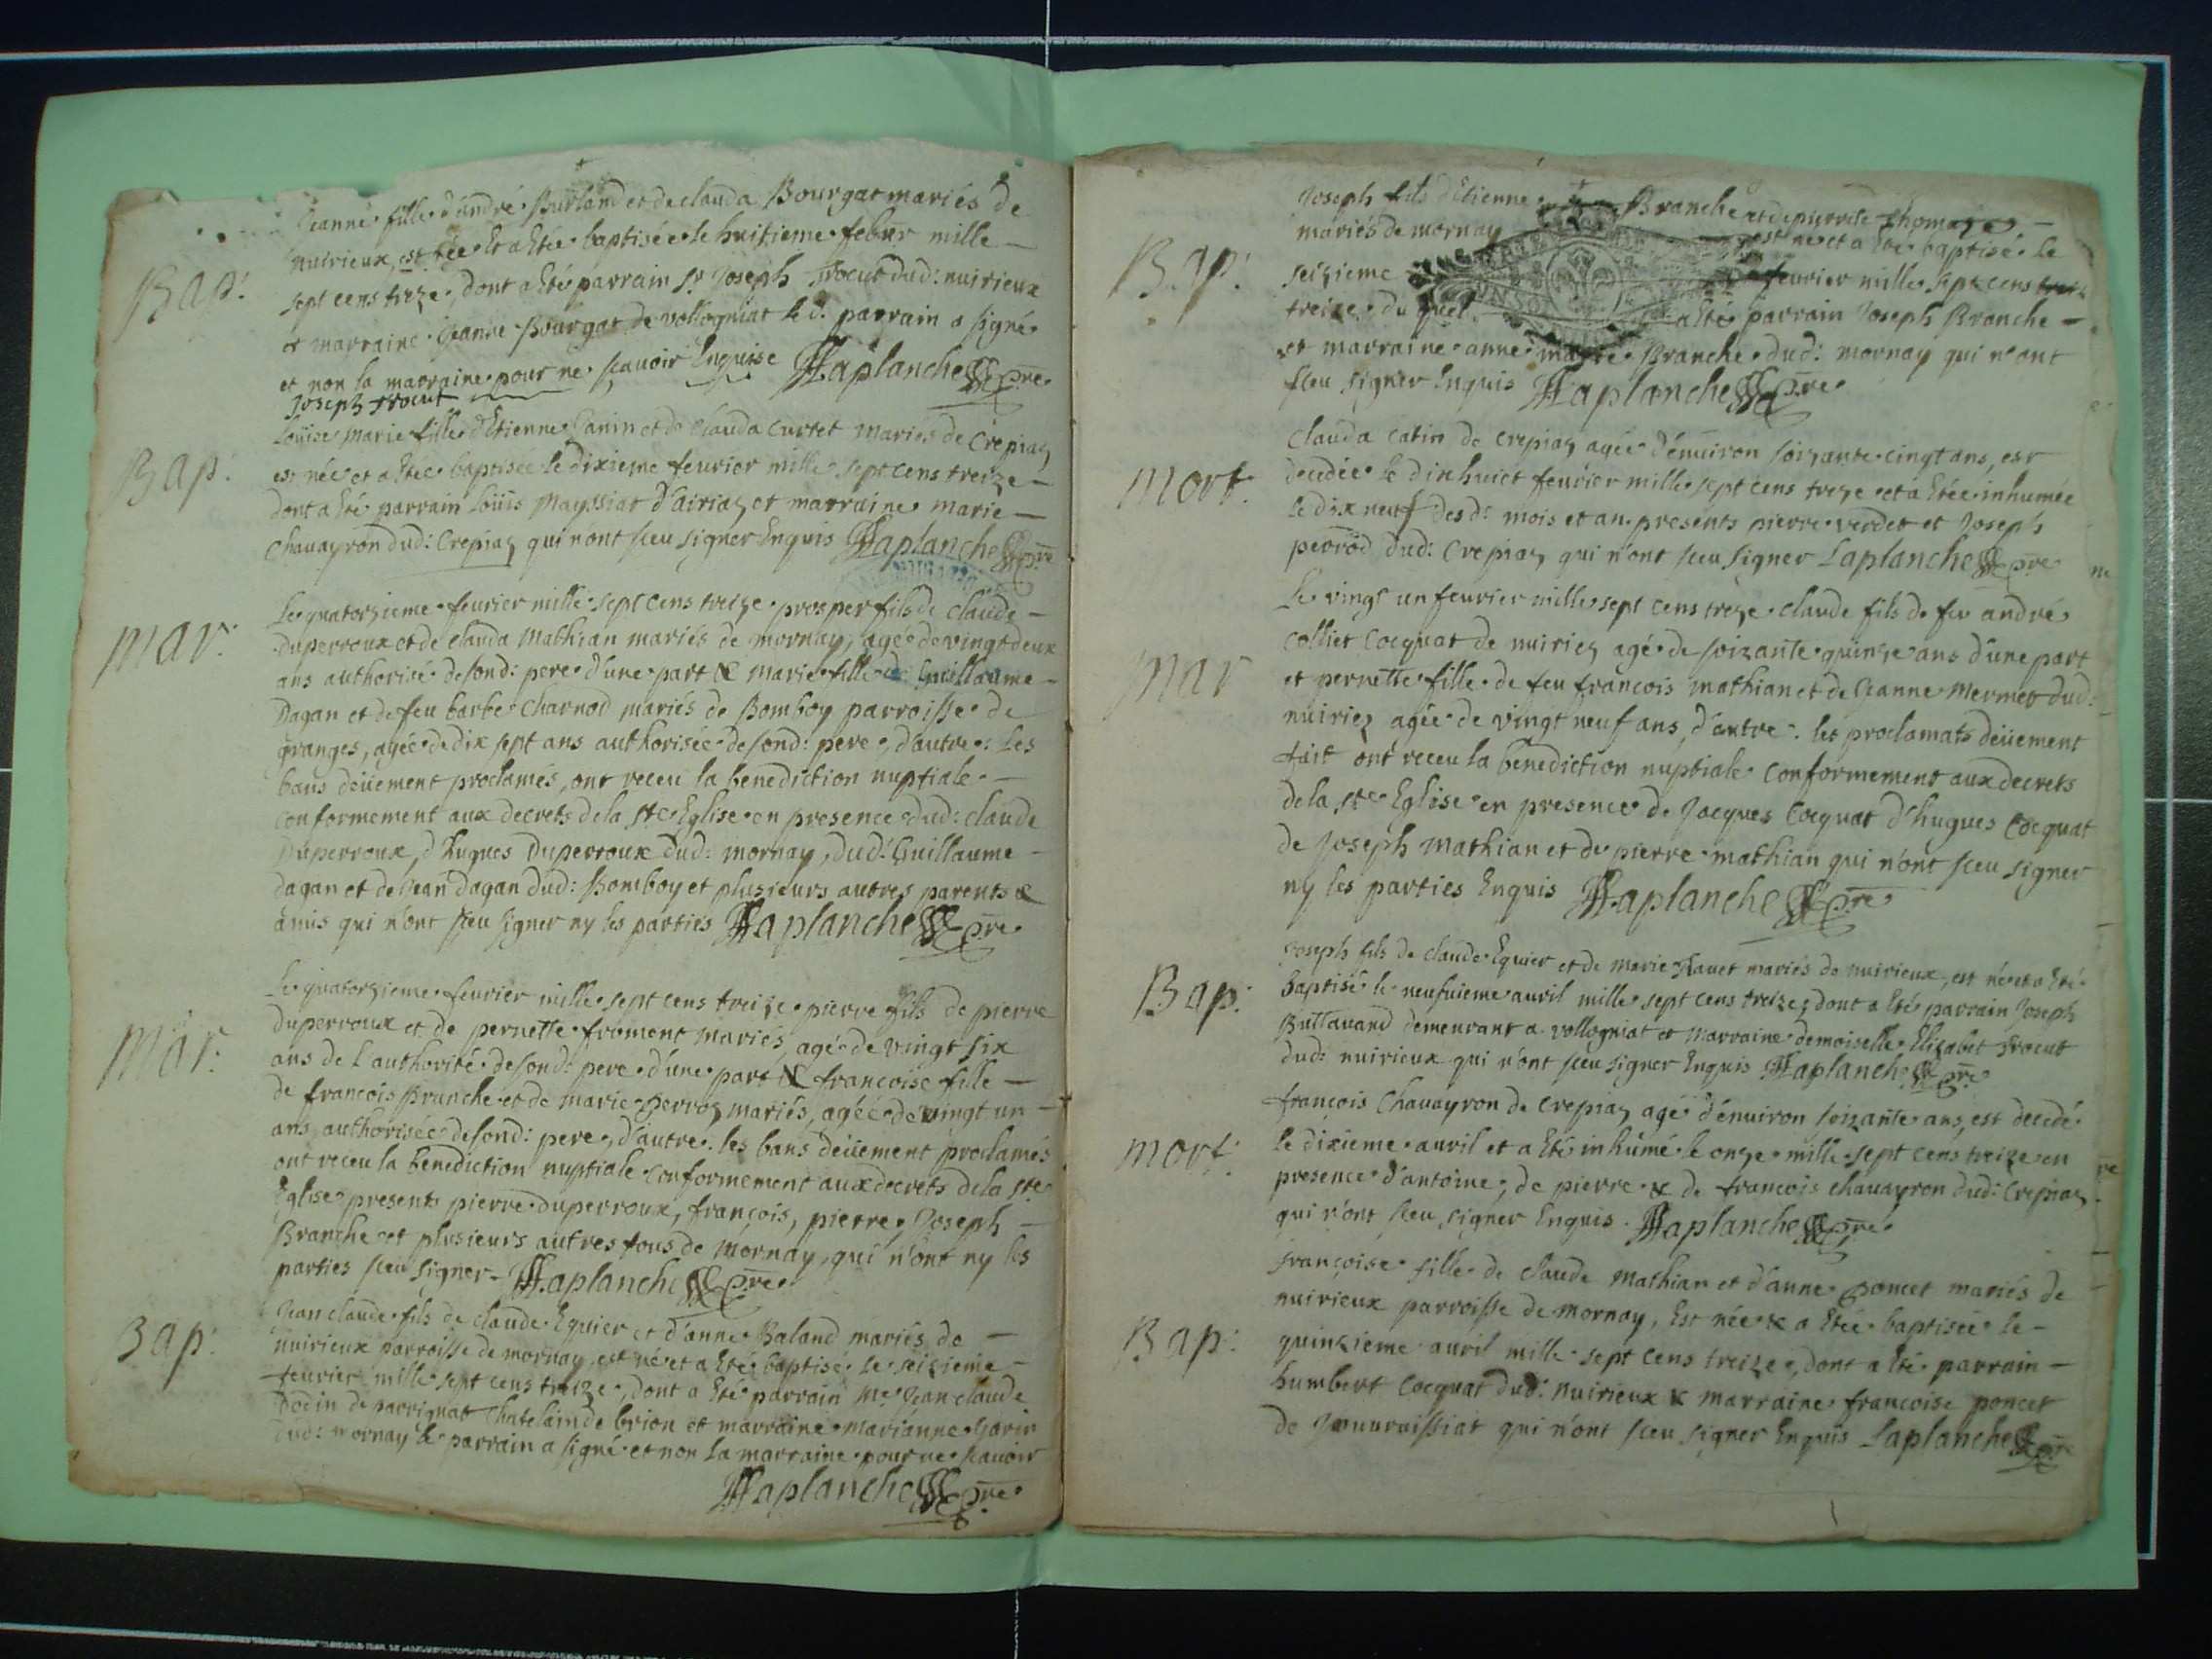 Jeanne fille d'andré Burland et de clauda Bourgat mariés de
Bap:
nuirieux, est née Et a Eté baptisée le huitieme febur mille
sept cens treze, dont a Eté parrain Sr Joseph trocut dud: nuirieux
et marraine Jeanne Bourgat de vollogniat le d: parrain a signé
et non la marraine pour ne scavoir Enquise Laplanche pre
Joseph trocut
Louise Marie fille d'Etienne Canin et de clauda curtet mariés de Crepiaz
Bap:
est née et a Etée baptisée le dixieme feurier mille sept cens treize
dont a Eté parrain Loüis Mayssiat d'airiaz et marraine marie
Chavayron dud: Crepiaz qui n'ont sceu signer Enquis Laplanche pre
Le quatorzieme feurier mille sept cens treize prosper fils de claude
mar:
duperroux et de clauda Mathian mariés de mornay, agé de vingt deux
ans authorisé de sond: pere d'une part & Marie fille de Guillaume
Dagan et de feu barbe Charnod mariés de Bomboy parroisse de
granges, agée de dix sept ans authorisée de sond: pere, d'autre: Les
bans deüement proclamés, ont receu la benediction nuptiale
conformement aux decrets de la ste Eglise en presence dud: claude
Duperroux, d'hugues Duperroux dud: mornay, dud: Guillaume
dagan et de Jean dagan dud: Bomboy et plusieurs autres parents &
amis qui n'ont sceu signer ny les parties Laplanche pre
Le quatorzieme feurier mille sept cens treize pierre fils de pierre
Mar:
duperroux et de pernette froment mariés, agé de vingt six
ans de l'authorité de sond: pere d'une part & françoise fille
de francois Branche et de marie perroz mariés, agée de vingt un
ans authorisée de sond: pere, d'autre: les bans deüement proclamés
ont receu la benediction nuptiale conformement aux decrets de la ste
Eglise presents pierre duperroux, françois, pierre, Joseph
Branche et plusieurs autres tous de Mornay, qui n'ont ny les
parties sceu signer Laplanche pre
Jean claude fils de claude Equier et d'anne Baland mariés de
Bap:
nuirieux parroisse de mornay, est né et a Eté baptisé le seizieme
feurier mille sept cens treize, dont a Eté parrain Me Jean claude
de parrignat Chatelain de brion et marraine marianne
dud: mornay le parrain a signé et non la marraine pour ne scauoir
Laplanche pre
Joseph fils d'Etienne Branche et de pierrete thomaze
Bap:
mariés de mornay est né et a Eté baptisé le
seizieme feurier mille sept cens
treize du quel a Eté parrain Joseph Branche
et marraine anne Branche dud: mornay qui n'ont
sceu signer Enquis Laplanche pre
Clauda catin de crepiaz agée d'enuiron soizante cingt ans, est
mort:
decedée le dixhuict feurier mille sept cens treze et a Etée inhumée
le dix neuf desd: mois et an presents pierre verdet et Joseph
perrod dud: Crepiaz qui n'ont sceu signer Laplanche pre
Le vingt un feurier mille sept cens treze claude fils de feu andré
Mar
colliet Cocquat de nuiriez agé de soizante quinze ans d'une part
et pernette fille de feu francois Mathian et de Jeanne Mermet dud:
nuiriez agée de vingt neuf ans, d'autre: les proclamats deüement
fait ont receu la benediction nuptiale conformement aux decrets
de la ste Eglise en presence de Jacques Cocquat d'hugues Cocquat
de Joseph Mathian et de pierre mathian qui n'ont sceu signer
ny les parties Enquis Laplanche pre
Joseph fils de claude Equier et de marie mariés de nuirieux, est né et a Eté
Bap:
baptisé le neufuieme auril mille sept cens treize, dont a Eté parrain Joseph
Buttavand demeurant a vollogniat et Marraine demoiselle Elizabet trocut
dud: nuirieux qui n'ont sceu signer Enquis Laplanche pre
françois Chavayron de crepiaz agé d'enuiron soizante ans, est decedé
mort:
le dixieme auril et a Eté inhumé le onze mille sept cens treize en
presence d'antoine, de pierre & de francois chavayron dud: Crepiaz
qui n'ont sceu signer Enquis. Laplanche pre
françoise fille de claude Mathian et d'anne poncet mariés de
nuirieux parroisse de mornay, Est née & a Etée baptisée le
Bap:
quinzieme auril mille sept cens treize, dont a Eté parrain
humbert Cocquat dud: nuirieux & marraine francoise poncet
de qui n'ont sceu signer Enquis Laplanche pre